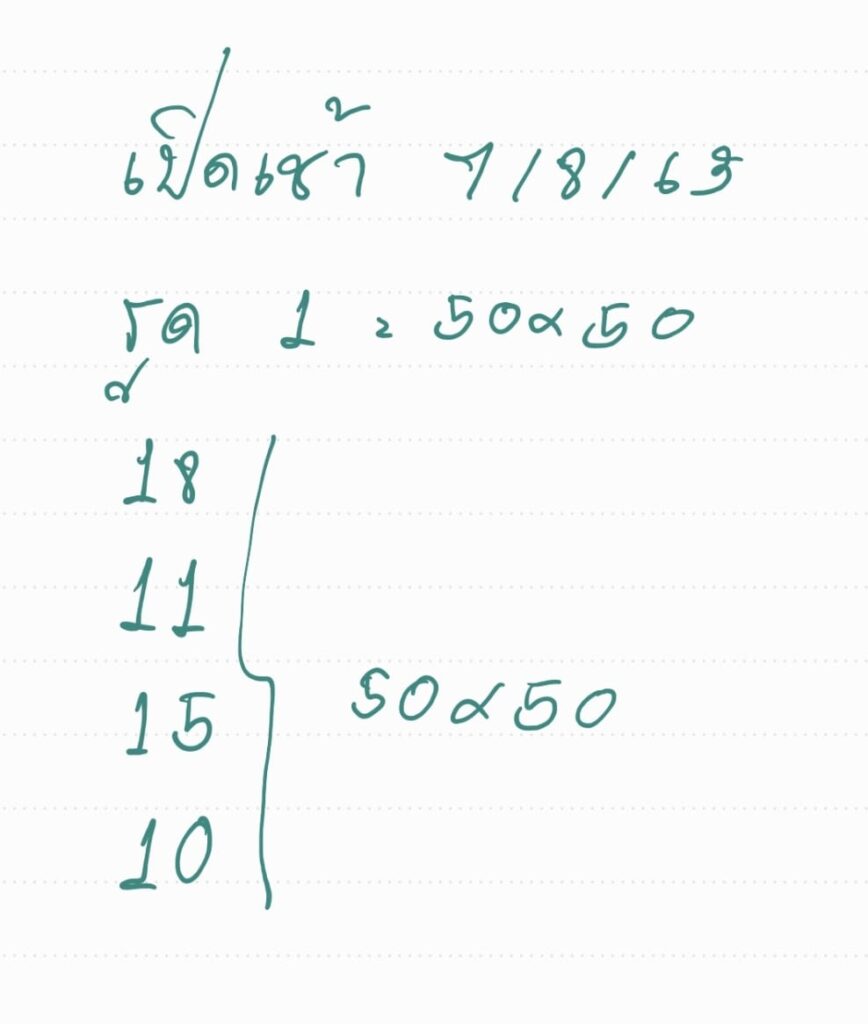 เปิดเช้า 7/8/63
รูด 1 = 50×50
18
11
15 50×50
10